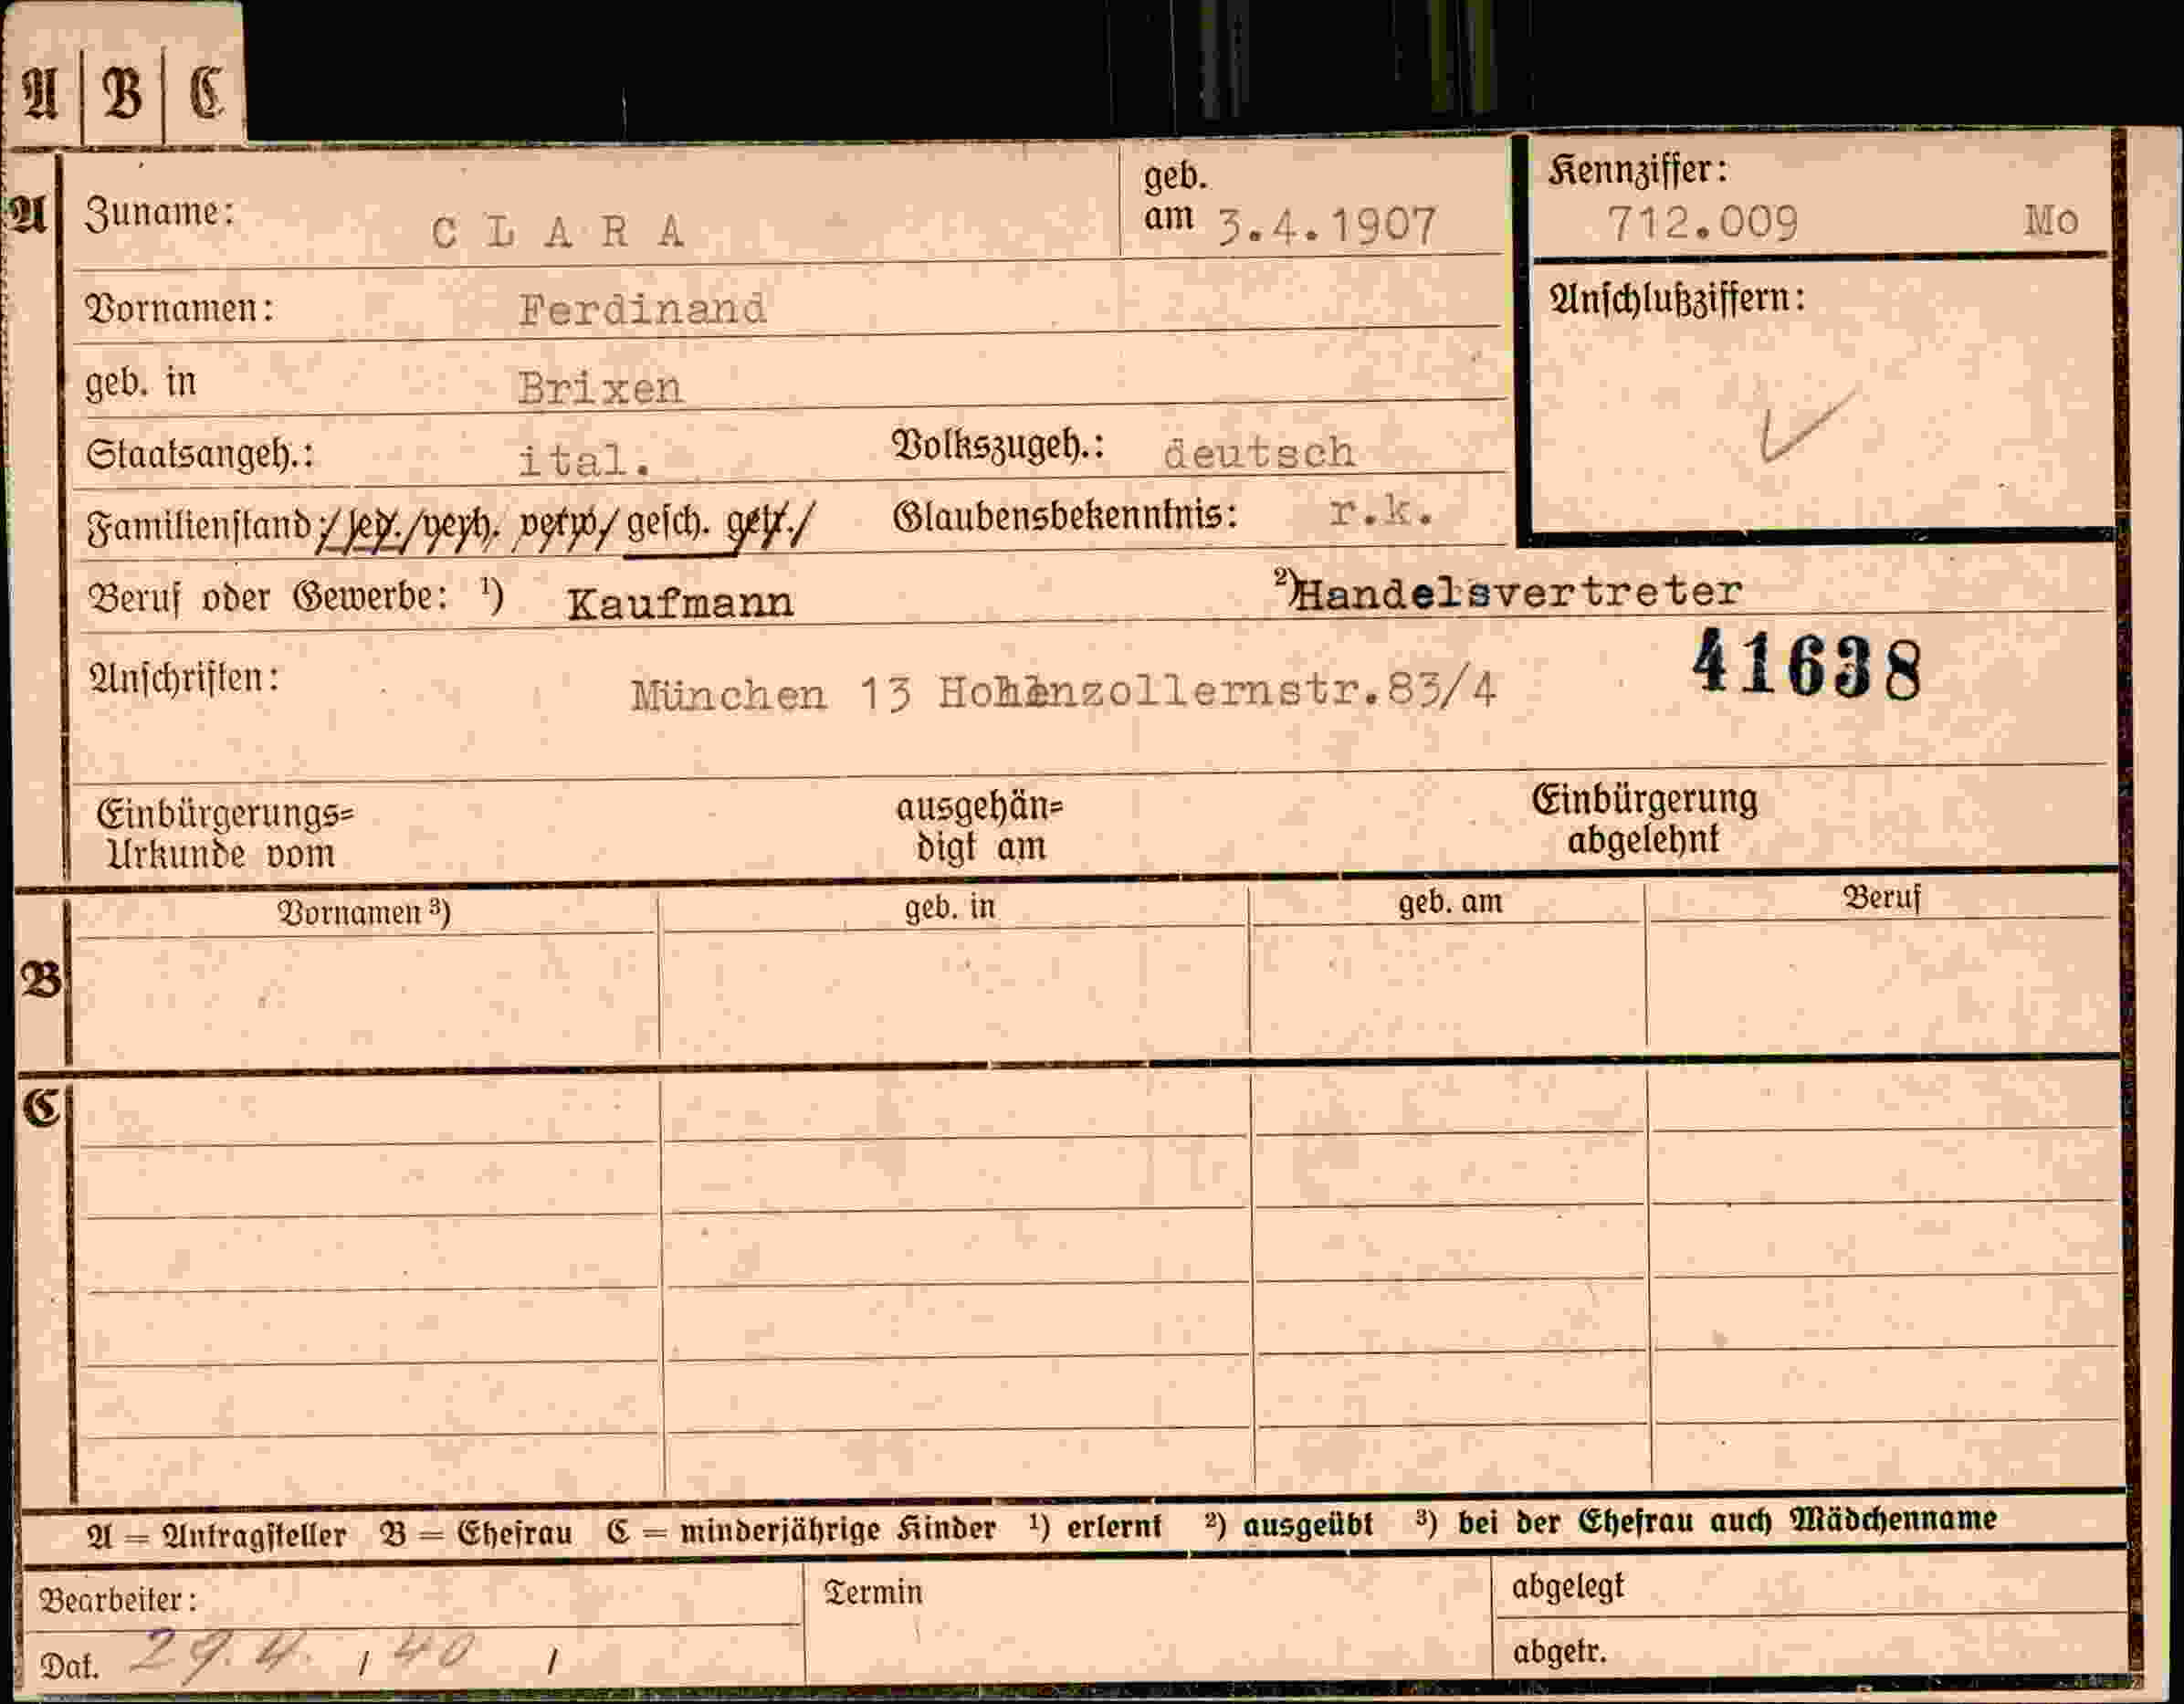 A B C
A
Zuname: CLARA geb. am 3.4.1907
Kennziffer: 712.009 Mo
Vornamen: Ferdinand
Anschlußziffern:
geb. in Brixen
Staatsangeh.: ital. Volkszugeh.: deutsch
Familienstand: led./verh. verw./ gesch. getr./ Glaubensbekenntnis: r.k.
Beruf oder Gewerbe: ¹) Kaufmann ²)Handelsvertreter
41638
Anschriften: München 13 Hohenzollernstr.83/4
Einbürgerungs= Urkunde vom
ausgehän= digt am
Einbürgerung abgelehnt
Vornamen ³) geb. in geb. am Beruf
B
C
A = Antragsteller B = Ehefrau C = minderjährige Kinder ¹) erlernt ²) ausgeübt ³) bei der Ehefrau auch Mädchenname
Bearbeiter: Termin abgelegt
Dat. 29.4. / 40 / abgetr.